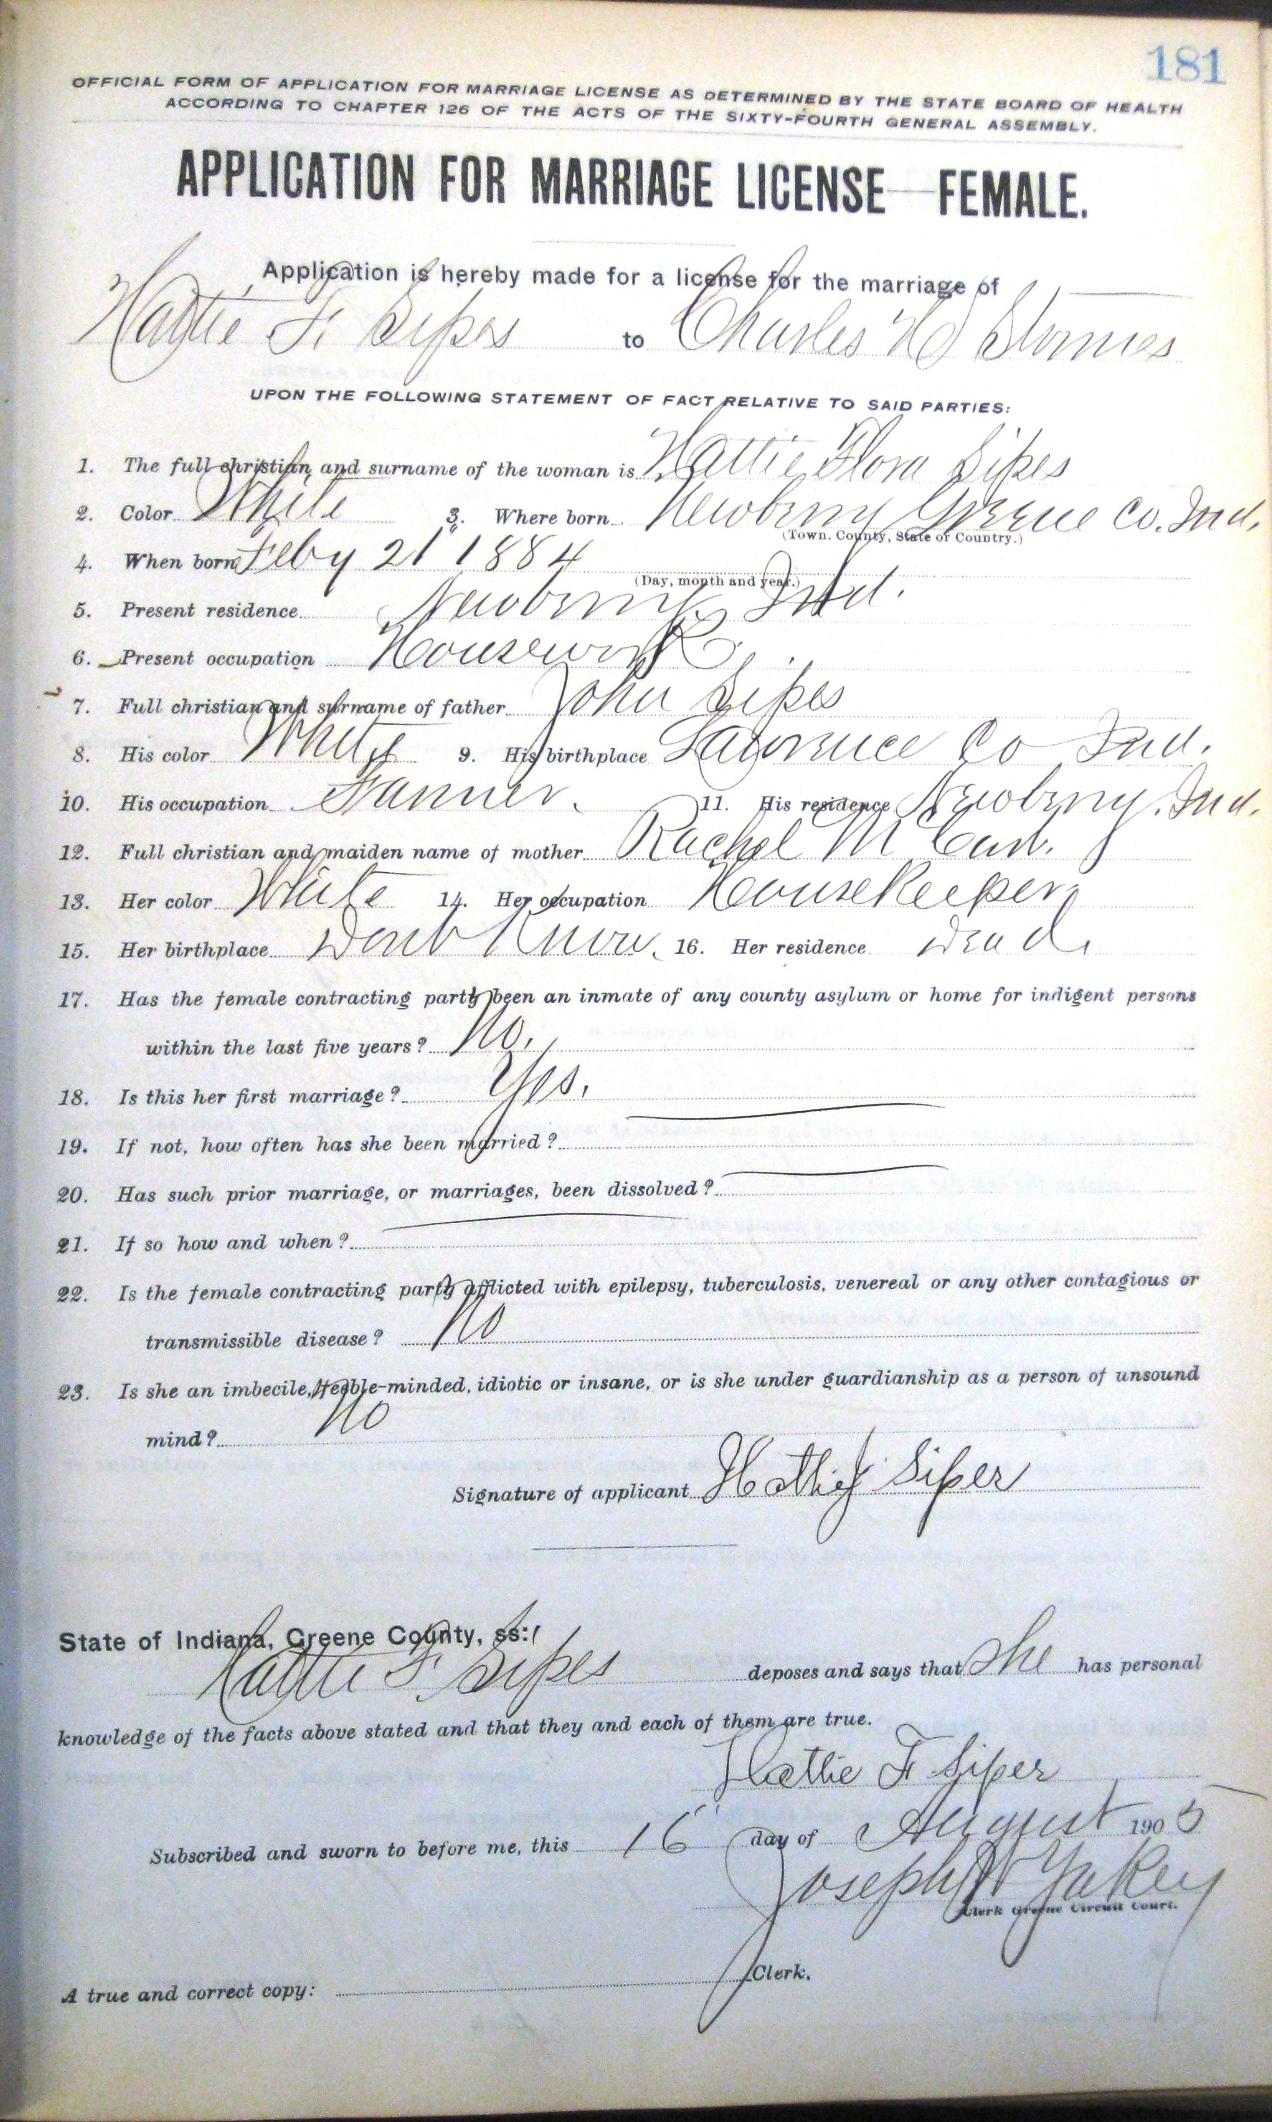 181
OFFICIAL FORM OF APPLICATION FOR MARRIAGE LICENSE AS DETERMINED BY THE STATE BOARD OF HEALTH
ACCORDING TO CHAPTER 126 OF THE ACTS OF THE SIXTY-FOURTH GENERAL ASSEMBLY.
APPLICATION FOR MARRIAGE LICENSE—FEMALE.
Application is hereby made for a license for the marriage of
Hattie F. Sipes to Charles
UPON THE FOLLOWING STATEMENT OF FACT RELATIVE TO SAID PARTIES:
1. The full christian and surname of the woman is Hattie Flora Sipes
2. Color White 3. Where born Newberry Greene Co. Ind.
(Town, County, State or Country.)
4. When born Feby 21" 1884
(Day, month and year.)
5. Present residence Newberry, Ind.
6. Present occupation Housework.
7. Full christian and surname of father John Sipes
8. His color White 9. His birthplace Lawrence Co Ind.
10. His occupation Farmer. 11. His residence Newberry. Ind.
12. Full christian and maiden name of mother Rachel
13. Her color White 14. Her occupation Housekeeper
15. Her birthplace Dont Know. 16. Her residence Dead.
17. Has the female contracting party been an inmate of any county asylum or home for indigent persons
within the last five years? No.
18. Is this her first marriage? Yes.
19. If not, how often has she been married?
20. Has such prior marriage, or marriages, been dissolved?
21. If so how and when?
22. Is the female contracting party afflicted with epilepsy, tuberculosis, venereal or any other contagious or
transmissible disease? No
23. Is she an imbecile, feeble-minded, idiotic or insane, or is she under guardianship as a person of unsound
mind? No
Signature of applicant Hattie F Siper
State of Indiana, Greene County, ss:
Hattie F. Sipes deposes and says that She has personal
knowledge of the facts above stated and that they and each of them are true.
Hattie F Siper
Subscribed and sworn to before me, this 16" day of August 1905
Joseph W Yakey
Clerk Greene Circuit Court.
A true and correct copy: Clerk.